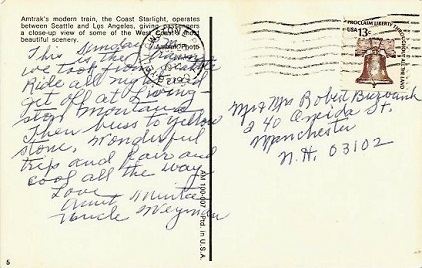 Amtrak's modern train, the Coast Starlight, operates
between Seattle and Los Angeles, giving passengers
a close-up view of some of the West Coast's most
beautiful scenery.
Photo
This Sunday
is the
we took from Seattle
Ride all
get off at Living-
ston Montana
Then buss to Yellow
stone, Wonderful
trip and fair and
cool all the way
Love
Aunt
Uncle
AM 100-007 Prd. in U.S.A.
5
PROCLAIM LIBERTY THROUGHOUT ALL THE LAND
USA 13c
Mr & Mrs Robert
240 Oneida St.
Manchester
N.H. 03102